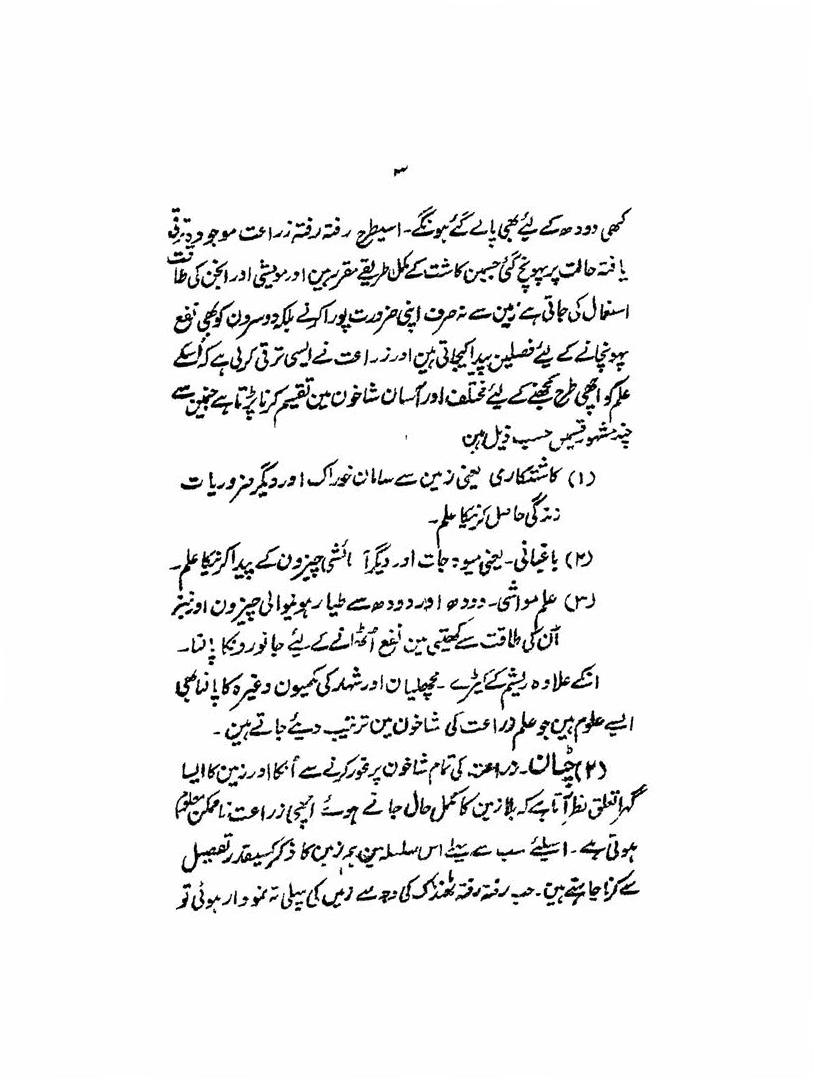 ۳
کبھی دودھ کے لئے بھی پالے گئے ہونگے۔ اسیطرح رفتہ رفتہ زراعت موجودہ ترقی
یافتہ حالت پر پہونچ گئی جسمین کاشت کے مکمل طریقے مقرر ہین اور مویشی اور انجن کی طاقت
استعمال کی جاتی ہے زمین سے نہ صرف اپنی ضرورت پورا کرنے بلکہ دوسرون کو بھی نفع
پہونچانے کے لئے فصلین پیدا کیجاتی ہین اور زراعت نے ایسی ترقی کرلی ہے کہ اُسکے
علم کو اچھی طرح سمجھنے کے لئے مختلف اور آسان شاخون مین تقسیم کرنا پڑتا ہے جنمین سے
چند مشہور قسمیں حسب ذیل ہین
(۱) کاشتکاری یعنی زمین سے سامان خوراک اور دیگر ضروریات
زندگی حاصل کرنیکا علم۔
(۲) باغبانی۔ یعنی میوہ جات اور دیگر آ ائشی چیزون کے پیدا کرنیکا علم۔
(۳) علم مواشی۔ دودھ اور دودھ سے طیار ہونیوالی چیزون اور نیز
اُن کی طاقت سے کھیتی مین نفع اُٹھانے کے لئے جانورونکا پالنا۔
انکے علاوہ ریشم کے کیڑے۔ مچھلیان اور شہد کی مکھیون وغیرہ کا پالنا بھی
ایسے علوم ہین جو علم زراعت کی شاخون مین ترتیب دیئے جاتے ہین۔
(۲) چٹان۔ زراعت کی تمام شاخون پر غور کرنے سے اُنکا اور زمین کا ایسا
گہرا تعلق نظر آتا ہے کہ بلا زمین کا مکمل حال جانے ہوئے اچھی زراعت ناممکن معلوم
ہوتی ہے۔ اسلئے سب سے پہلے اس سلسلہ مین ہم زمین کا ذکر کسیقدر تفصیل
سے کرنا چاہتے ہین۔ جب رفتہ رفتہ ٹھنڈک کی وجہ سے زمین کی پہلی تہ نمودار ہوئی تو